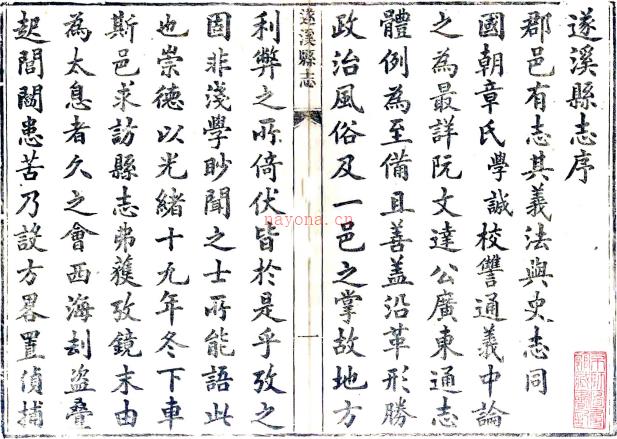 遂溪縣志序
郡邑有志其義法與史志同
國朝章氏學誠校讐通義中論
之為最詳阮文達公廣東通志
體例為至備且善蓋沿革形勝
政治風俗及一邑之掌故地方
遂溪縣志
一
利弊之所倚伏皆於是乎攷之
固非淺學眇聞之士所能語此
也崇德以光緒十九年冬下車
斯邑求訪縣志弗獲攷鏡末由
為太息者久之會西海刦盜疊
起閭閻患苦乃設方畧置偵捕
nayona.cn